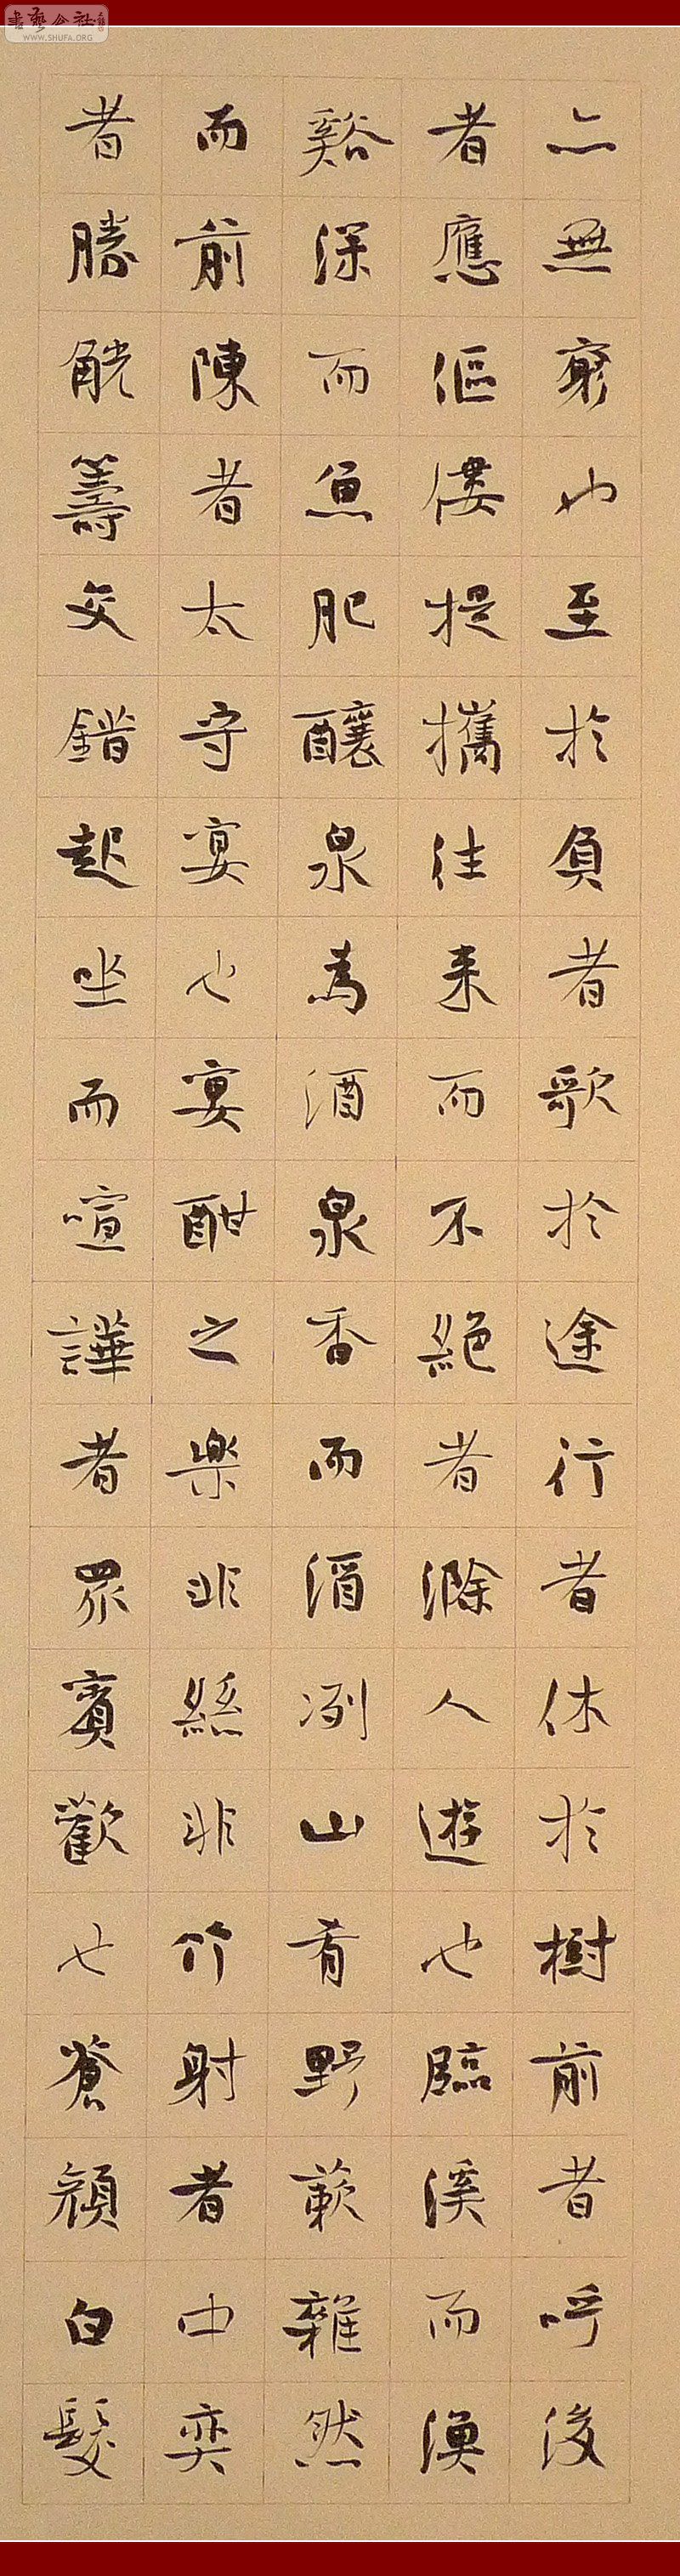 書藝公社
WWW.SHUFA.ORG
亦無窮也至於負者歌於途行者休於樹前者呼後
者應傴僂提攜往来而不絕者滁人遊也臨溪而漁
谿深而魚肥釀泉為酒泉香而酒冽山肴野蔌雜然
而前陳者太守宴也宴酣之樂非絲非竹射者中奕
者勝觥籌交錯起坐而喧譁者眾賓歡也蒼顏白髮